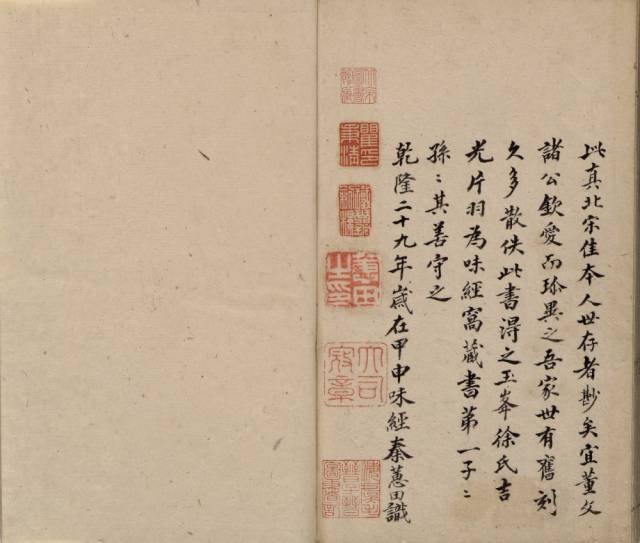 此真北宋佳本人世存者尠矣宜董文
諸公欽愛而珍異之吾家世有舊刻
久多散佚此書淂之玉峯徐氏吉
光片羽為味經窩藏書第一子〻
孫〻其善守之
乾隆二十九年歲在甲申味經秦蕙田識
瞿印秉清
蕙田之印
大司寇章